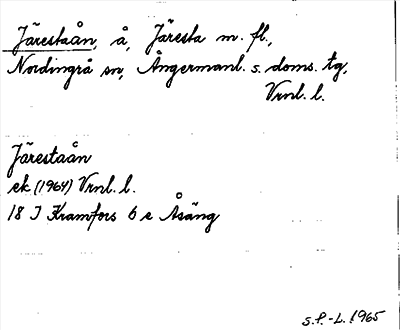 Järestaån, å, Järesta m. fl.,
Nordingrå sn, Ångermanl. s. doms. tg,
Vrnl. l.
Järestaån
ek (1964) Vrnl. l.
18 J Kramfors 6 e Åsäng
S.P.-L. 1965